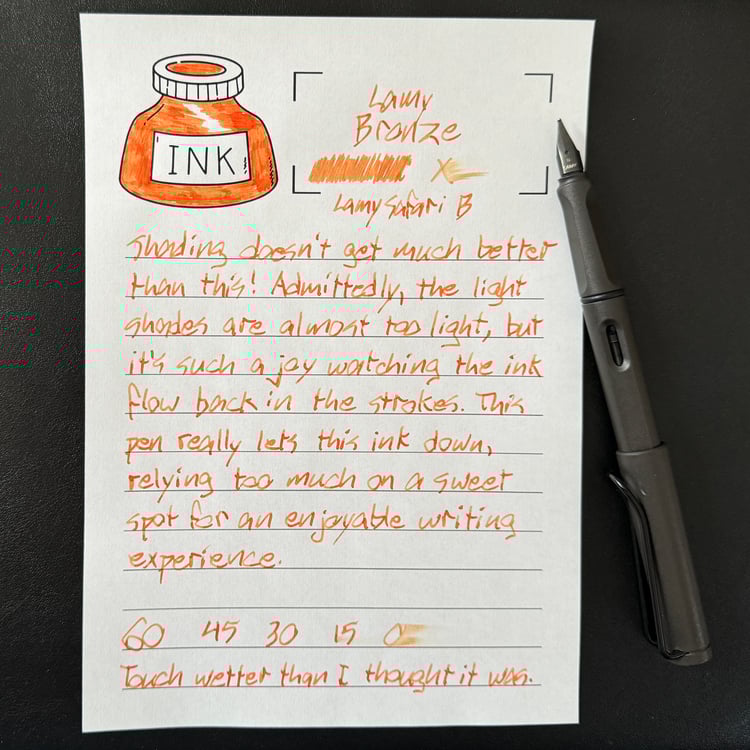 INK
Lamy
Bronze
X
Lamy Safari B
Shading doesn't get much better
than this! Admittedly, the light
shades are almost too light, but
it's such a joy watching the ink
flow back in the strokes. This
pen really lets this ink down,
relying too much on a sweet
spot for an enjoyable writing
experience.
60 45 30 15 0
Touch wetter than I thought it was.